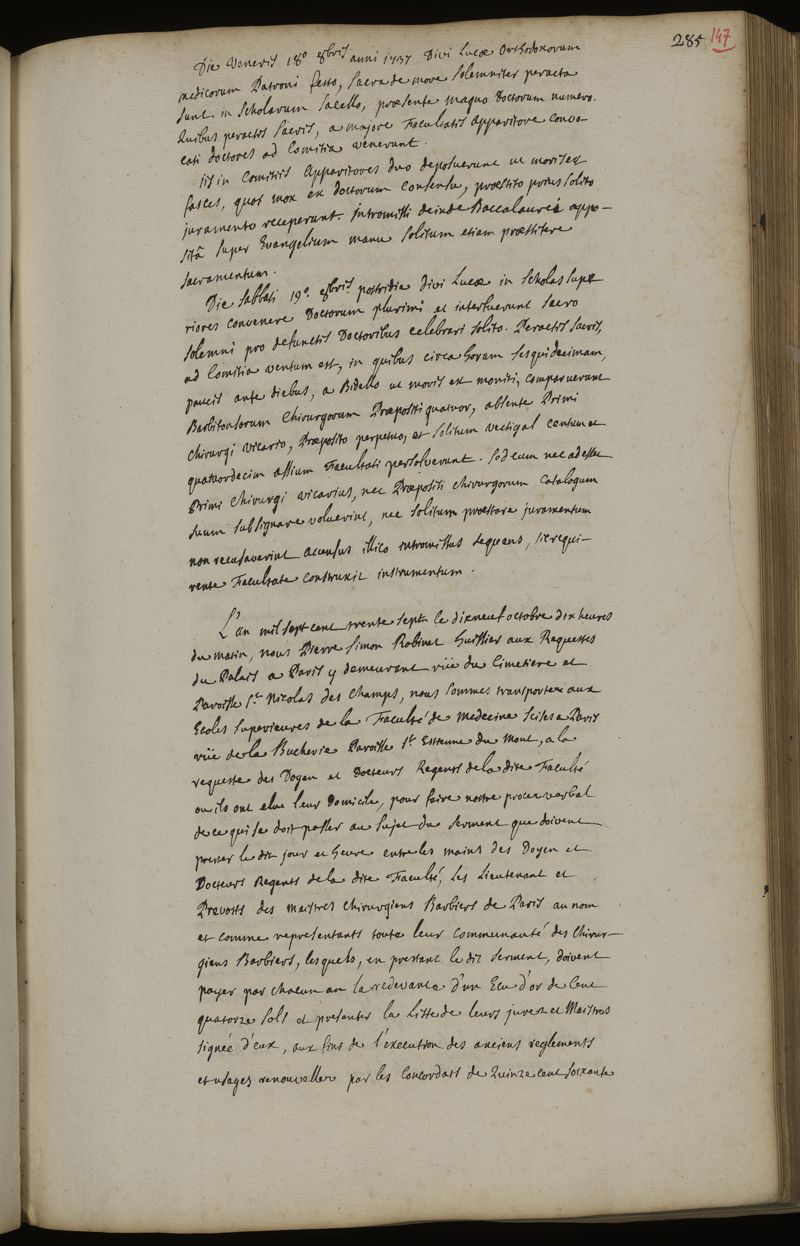 285 147
Die Veneris 18º 8bris anni 1737 Divi Lucæ Orthodoxorum
medicorum Patroni festo, sacra de more solemniter peracta
sunt in Scholarum sacello, præsente magno Doctorum numero.
Quibus peractis sacris, a majore Facultatis Apparitore convo-
cati doctores ad Comitia venerunt.
His in Comitiis Apparitores duo deposuerunt ut moris est
fasces, quos mox ex doctorum consensu, præstito prius solito
juramento receperunt. Intromissi deinde Baccalaurei appo-
sitâ super Evangelium manu solitum etiam præstitere
sacramentum.
Die Sabbati 19º 8bris postridie Divi Lucæ in Scholas supe
riores convenere Doctorum plurimi et interfuerunt sacro
solemni pro defunctis Doctoribus celebrari solito. Peractis sacris,
ad Comitia ventum est, in quibus circa horam sesquidecimam,
paucis ante diebus, a Bidello ut moris est moniti, comparuerunt
Barbitonsorum Chirurgorum Præpositi quatuor, absente Primi
Chirurgi vicario, Præposito perpetuo, et solitum vectigal centum et
quatuordecim assium Facultati persolverunt. Sed cum nec adesset
Primi Chirurgi vicarius, nec Præpositi chirurgorum Catalogum
suum subsignare voluerint, nec solitum præstare juramentum
non recusaverint accensus illico intromissus sequens, sic requi-
rente Facultate construxit instrumentum.
L'an mil sept cent trente sept le dixneuf octobre dix heures
du matin, nous Pierre Simon Robinet Huissier aux Requestes
du Palais a Paris y demeurant rüe du Cimetiere et
Paroisse St. Nicolas des Champs, nous sommes transporté aux
Ecoles superieures de la Faculté de medecine scises a Paris
rüe de la Bucherie Paroisse St. Estienne du Mont, a la
requeste des Doyen et Docteurs Regents de la dite Faculté
ou ils ont elu leur Domicile, pour faire nostre procez verbal
de ce qui se doit passer au sujet du serment que doivent
prester le dit jour et heure entre les mains des Doyen et
Docteurs Regents de la dite Faculté, les Lieutenant et
Prevosts des maistres chirurgiens Barbiers de Paris au nom
et comme representants toute leur communauté des Chirur-
giens Barbiers, lesquels, en prestant le dit serment, doivent
payer par chacun an la redevance d'un Ecu d'or de Cent
quatorze sols et presenter la Liste de leurs jurez et Maistres
signée d'eux, aux fins de l'execution des anciens reglements
et usages renouveller par les Concordats de Quinze cent soixante